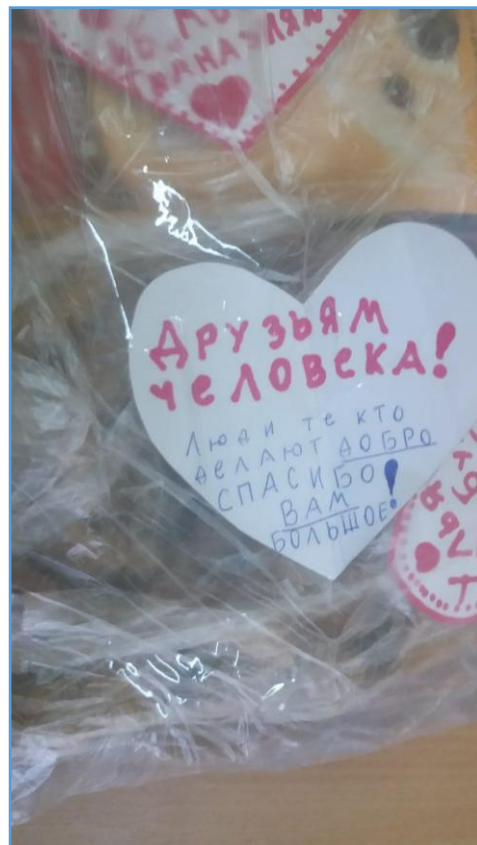 ДРУЗЬЯМ
ЧЕЛОВЕКА!
Люди те кто
делают ДОБРО
СПАСИБО!
ВАМ
БОЛЬШОЕ!